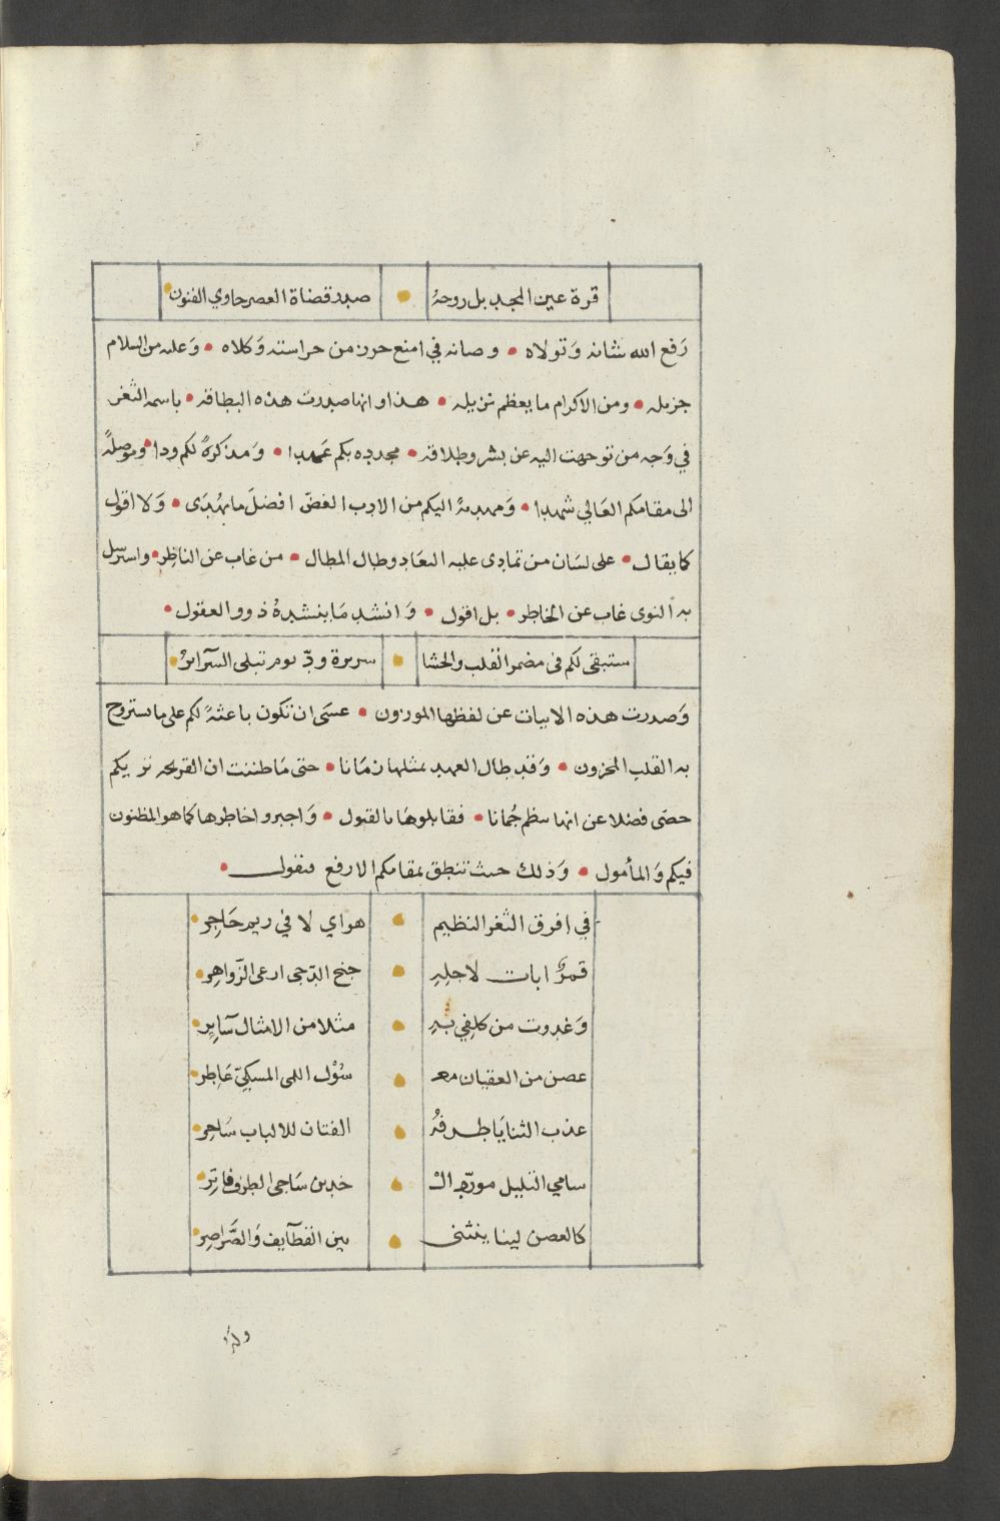 قرة عين المجد بل روحهُ • صدر قضاة العصر حاوي الفنون
رَفع الله شانه وَتولاه • وصانه في امنع حرز من حراسته وَكلاه • وَعليه من السلام
جزيله • ومن الاكرام ما يعظم تنزيله • هذا وانها صدرت هذه البطاقه • باسمة الثغر
في وَجه من توجهت اليه عن بشر وطلاقه • مجدده بكم عَهدا • وَمذكرةً لكم ودا • وموصلةً
الى مقامكم العَالي شهدا • وَمهديةً اليكم من الادب الغضّ افضلَ ما يُهدَى • وَلا اقول
كما يقال • على لسَان من تمادى عليه البعَاد وطال المطال • من غاب عن الناظر • واسترسل
به النوى غاب عن الخاطر • بل اقول • وَانشد مَا ينشدهُ ذوو العقول •
ستبقى لكم في مضمر القلب والحشا • سريرة ودّ يوم تبلى السَّرائرُ
وَصدرت هذه الابيات عن لفظها الموزون • عسَى ان تكون باعثةً لكم على ما يستروح
به القلب المحزون • وَقد طال العهد بمثلها زمَانا • حتى مَا ظننت ان القريحه تريكم
حصًى فضلا عن انها تنظم جُمانا • فقابلوهَا بالقبول • وَاجبروا خاطرها كما هو المظنون
فيكم وَالمأمول • وَذلك حيث تنطق بمقامكم الارفع فتقول •
في افرق الثغر النظيم • هواي لا في ريم حَاجِر
قمرٌ ابات لاجلِهِ • جنح الدّجى ارعى الزّواهِر
وَغدوت من كلفي بهِ • مثلا من الامثال سَايِر
غصن من العقيان مع • سُوْل اللمى المسكيّ عَاطِر
عذب الثنايَا طرفهُ • الفتان للالباب سَاحِر
سامي التليل مورّد الْـ • خدين سَاجى الطرف فاتِر
كالغصن لينا ينثنى • بين القطآيف وَالصَّراصِر
وله